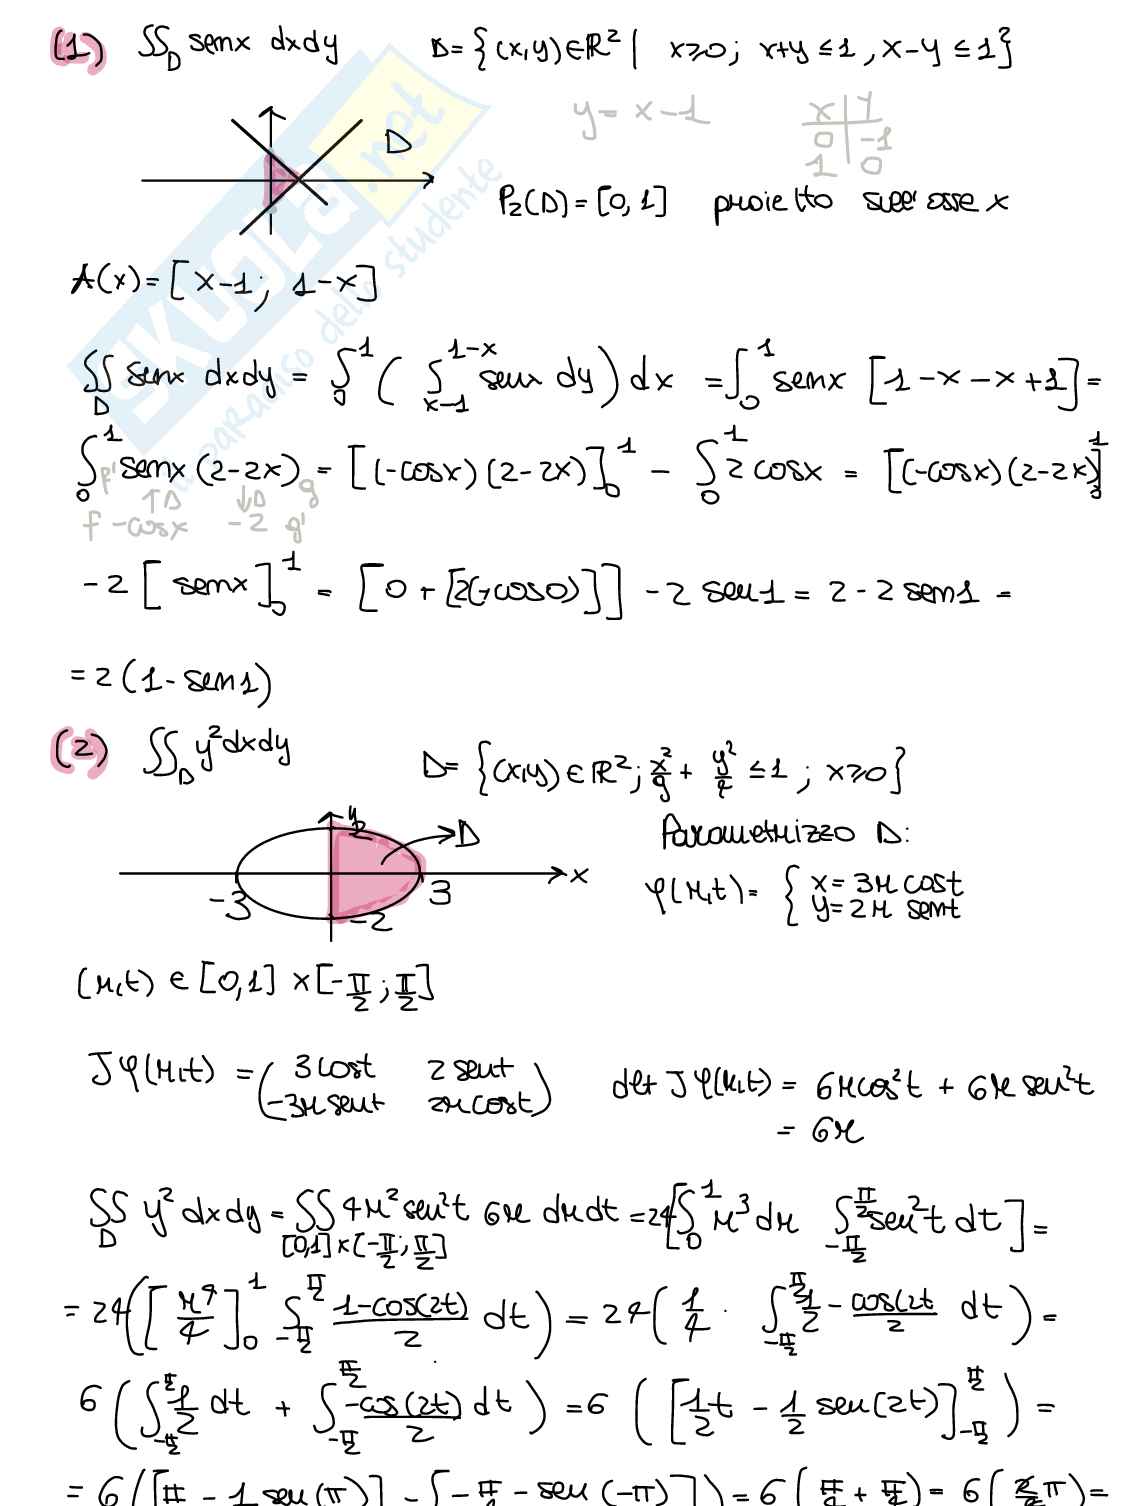 (1) ∬_D senx dxdy D= {(x,y)∈ℝ² | x≥0; x+y ≤1, x-y ≤1}
y= x-1
x | y
0 | -1
1 | 0
D
P₂(D)=[0,1] proietto sull'asse x
A(x)=[x-1; 1-x]
∬_D senx dxdy = ∫_0^1 ( ∫_{x-1}^{1-x} senx dy ) dx = ∫_0^1 senx [1-x-x+1]=
∫_0^1 senx (2-2x) = [(-cosx)(2-2x)]_0^1 - ∫_0^1 2 cosx = [(-cosx)(2-2x)]_0^1
f' ↑D ↓D g
f -cosx -2 g'
-2 [senx]_0^1 = [0+[2(-cos0)]] -2 sen1 = 2-2 sen1 =
= 2(1-sen1)
(2) ∬_D y² dxdy D= {(x,y)∈ℝ²; x²/9 + y²/4 ≤1; x≥0}
y 2 →D x
-3 3 -2
Parametrizzo D:
φ(r,t)= { x= 3r cost
y=2r sent
(r,t) ∈ [0,1] ×[-π/2; π/2]
Jφ(r,t) = ( 3cost 2sent
-3r sent 2r cost ) det Jφ(r,t)= 6rcos²t + 6r sen²t
= 6r
∬_D y² dxdy = ∬_{[0,1]×[-π/2; π/2]} 4r² sen²t 6r drdt = 24[∫_0^1 r³ dr ∫_{-π/2}^{π/2} sen²t dt] =
= 24([r⁴/4]_0^1 ∫_{-π/2}^{π/2} (1-cos(2t))/2 dt) = 24(1/4 · ∫_{-π/2}^{π/2} 1/2 - cos(2t/2 dt) =
6(∫_{-π/2}^{π/2} 1/2 dt + ∫_{-π/2}^{π/2} -cos(2t)/2 dt) = 6([1/2 t - 1/2 sen(2t)]_{-π/2}^{π/2}) =
SKUOLA.net
il paradiso dello studente